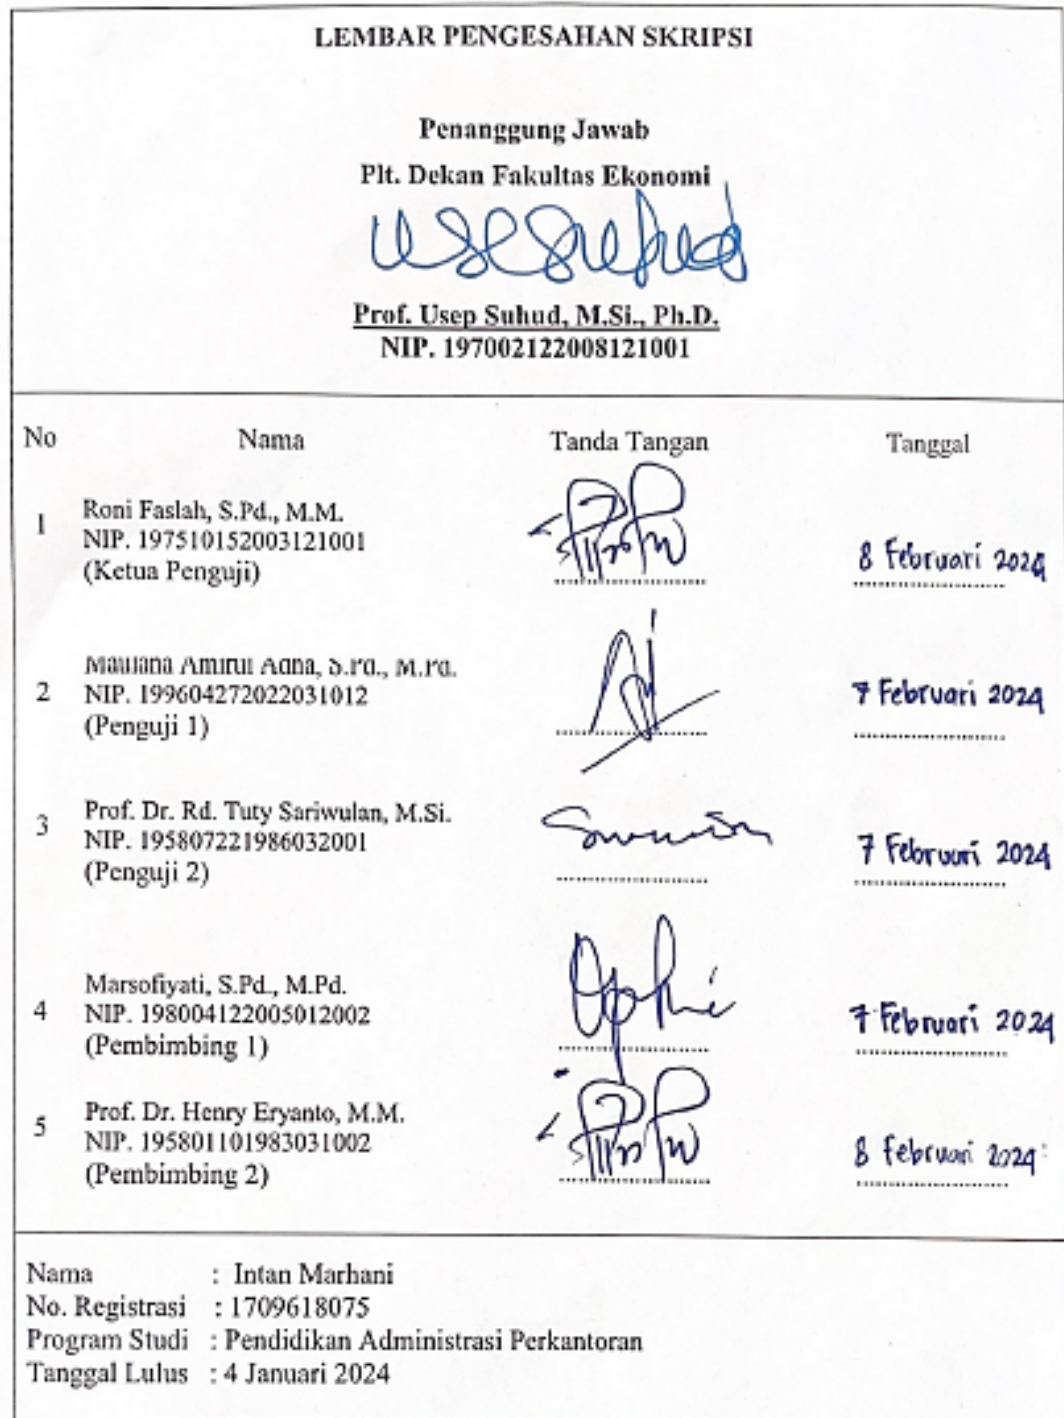 LEMBAR PENGESAHAN SKRIPSI
Penanggung Jawab
Plt. Dekan Fakultas Ekonomi
Prof. Usep Suhud, M.Si., Ph.D.
NIP. 197002122008121001
No Nama Tanda Tangan Tanggal
1 Roni Faslah, S.Pd., M.M.
NIP. 197510152003121001
(Ketua Penguji)
8 Februari 2024
2 Maulana Amirul Adha, S.Pd., M.Pd.
NIP. 199604272022031012
(Penguji 1)
7 Februari 2024
3 Prof. Dr. Rd. Tuty Sariwulan, M.Si.
NIP. 195807221986032001
(Penguji 2)
7 Februari 2024
4 Marsofiyati, S.Pd., M.Pd.
NIP. 198004122005012002
(Pembimbing 1)
7 Februari 2024
5 Prof. Dr. Henry Eryanto, M.M.
NIP. 195801101983031002
(Pembimbing 2)
8 Februari 2024
Nama : Intan Marhani
No. Registrasi : 1709618075
Program Studi : Pendidikan Administrasi Perkantoran
Tanggal Lulus : 4 Januari 2024